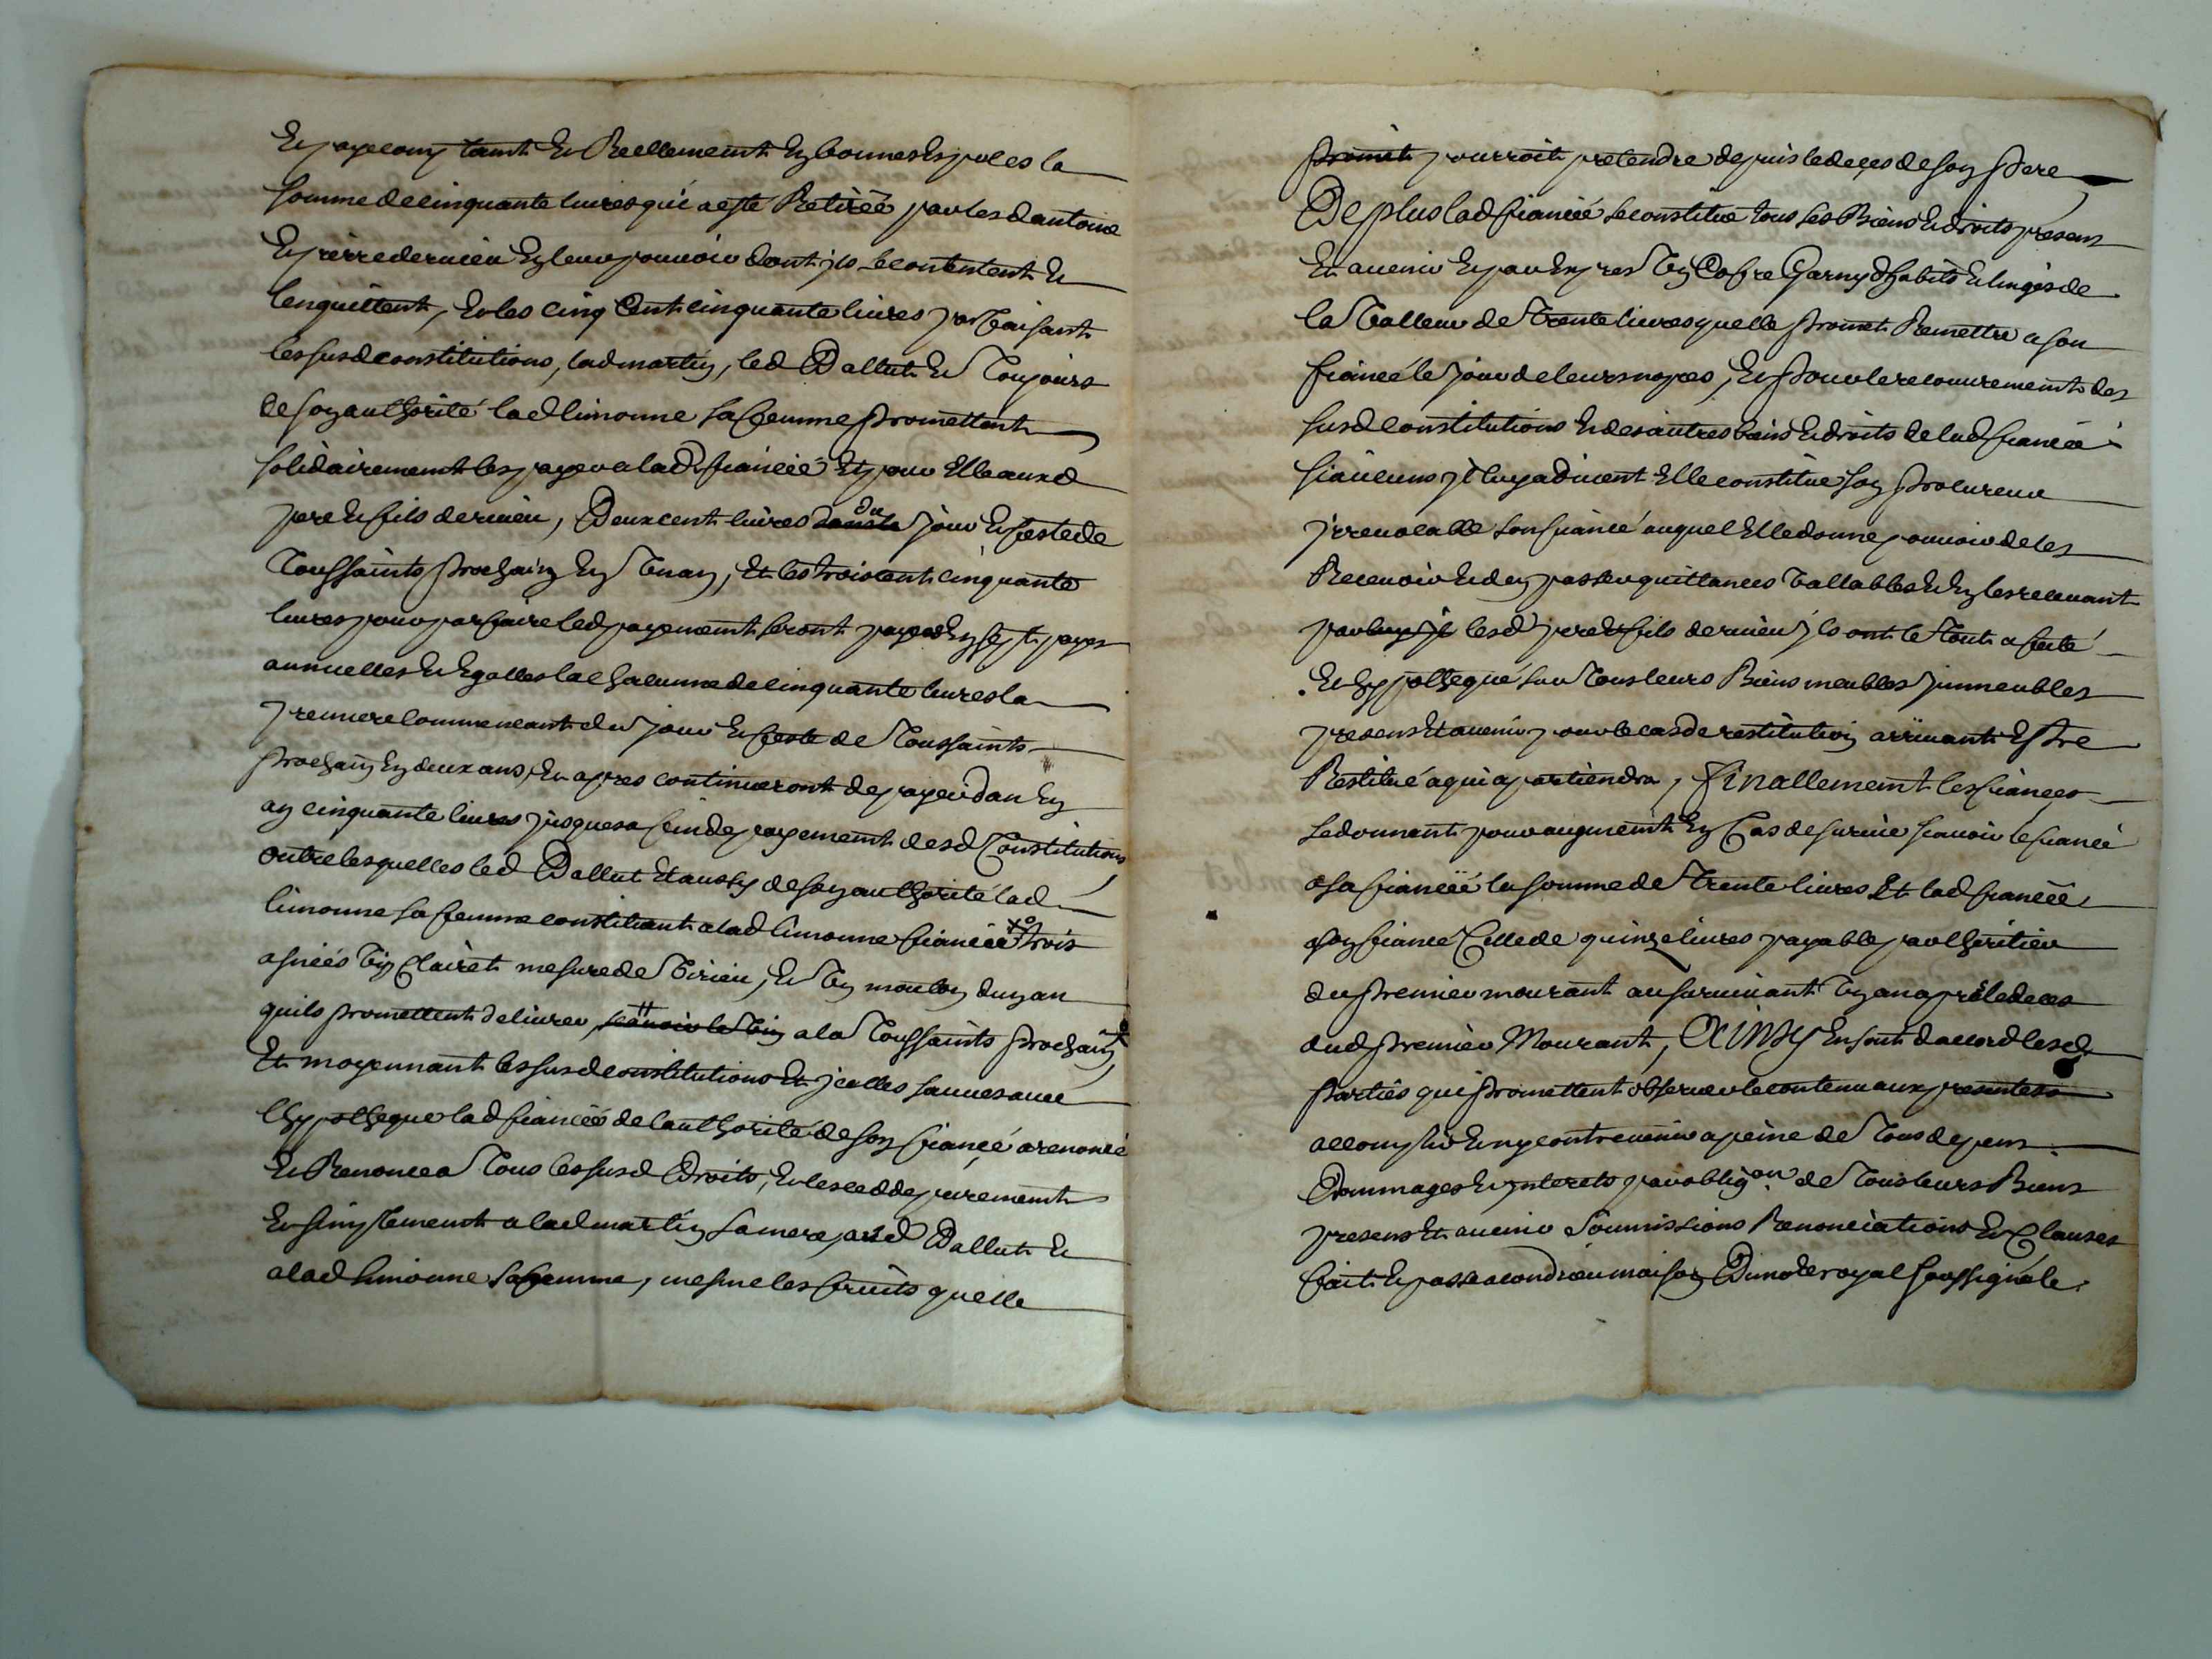 Et paye comptamt Et Reellememt En bonnes Espoles la
somme de cinquante livres qui a esté Retirée par lesd antoine
Et pierre dervieu En leur pouvoir dont ils se contentent Et
lenquittent, Et les cinq Cent cinquante livres parfaisant
les susd constitutions, lad martin, led Dallut Et Toujours
de son authorité lad limonne sa femme promettent
solidairememt les payer a lad fianceé Et pour Elle ausd
pere Et fils dervieu, Deux cent livres du jour Et feste de
Toussaints prochain En Un an, Et les trois cent cinquante
livres pour parfaire led payememt seront payeés En sept payes
annuelles Et Egalles la chacunne de cinquante livres la
premiere commencant du jour Et feste de Toussaints
prochain En deux ans, Et apres continueront de payer dan En
an cinquante livres jusques a fin de payememt desd Constitutions
outre lesquelles led Dallut Et aussy de son authorité lad
limonne sa femme constituent a lad limonne fianceé trois
asneés Vin Clairet mesure de Virieu, Et Un mouton dun an
quils promettent delivrer, scavoir le Vin a la Toussaints prochain
Et moyennant les susd constitutions Et jcelles sauves avec
lhypotheque lad fianceé de lauthorité de son fiancé a renoncé
Et Renonce a Tous les susd Droits, Et les cedde puremement
Et simplememt a lad martin sa mere, aud Dallut Et
a lad limonne sa femme, mesme les fruits quelle
promet pourroit pretendre depuis le deces de son pere
De plus lad fianceé se constitue tous ses Biens Et droits presens
Et avenir Et par Expres Un Coffre Garny dhabits Et linges de
la Valleur de Trente livres quelle promet Remettre a son
fiancé le jour de leurs nopces, Et pour le recouvrememt des
susd constitutions Et des autres biens Et droits de lad fianceé
si aucuns jl luy advient Elle constitue son procureur
jrrevocable son fiancé auquel Elle donne pouvoir de les
Recevoir Et den passer quittances Vallables Et En les recevant
par luy jl lesd pere Et fils dervieu jls ont le Tout asseté
Et hypothequé sur Tous leurs Biens meubles jmmeubles
presens Et avenir pour le cas de restitution arrivant Estre
Restitué a qui apartiendra, finallememt les fiances
se donnent pour augmemt En Cas de survie scavoir le fiancé
a sa fianceé la somme de Trente livres Et lad fianceé
a son fiancé Celle de quinze livres payable par lheritier
du premier mourant au survivant Un an apres le deces
dud premier Mourant, Ainsy En sont daccord lesd
parties qui promettent observer le contenu aux presentes
accomplir Et ny contrevenir a peine de Tous depens
Dommages Et jnterets par obligon de Tous leurs Biens
presens Et avenir Soumissions Renonciations Et Clauses
fait Et passé a condrieu maison Du note royal soussigné le